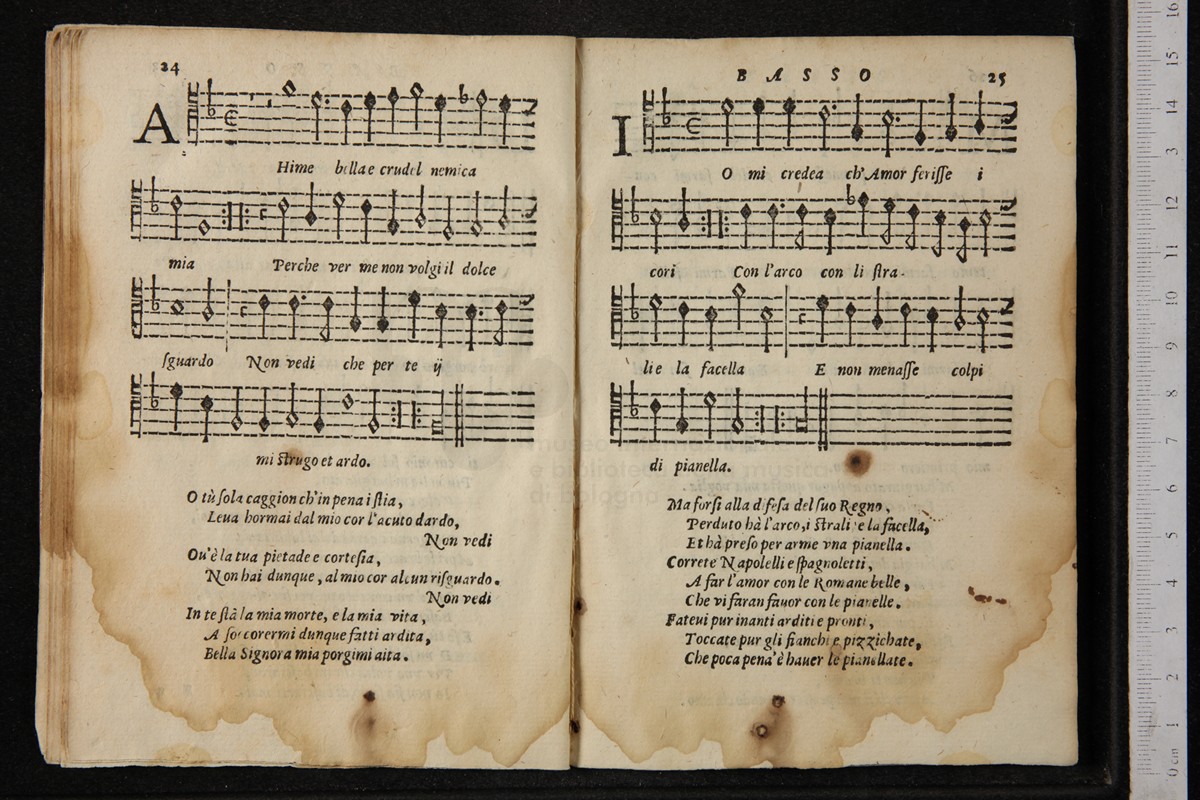 24
A
Hime bella e crudel nemica
mia Perche ver me non volgi il dolce
ſguardo Non vedi che per te ij
mi ſtrugo et ardo.
O tù ſola caggion ch'in pena i ſtia,
Leua hormai dal mio cor l'acuto dardo,
Non vedi
Ou'è la tua pietade e corteſia,
Non hai dunque, al mio cor alcun riſguardo.
Non vedi
In te ſtà la mia morte, e la mia vita,
A ſoccorermi dunque fatti ardita,
Bella Signora mia porgimi aita.
BASSO 25
I
O mi credea ch'Amor feriſſe i
cori Con l'arco con li ſtra-
li e la facella E non menaſſe colpi
di pianella.
Ma forſi alla difeſa del ſuo Regno,
Perduto hà l'arco, i ſtrali e la facella,
Et hà preſo per arme vna pianella.
Correte Napolelli e ſpagnoletti,
A far l'amor con le Romane belle,
Che vi faran fauor con le pianelle.
Fateui pur inanti arditi e pronti,
Toccate pur gli fianchi e pizzichate,
Che poca pena'è hauer le pianellate.
museo
e biblioteca musica
di bologna
0 cm 1 2 3 4 5 6 7 8 9 10 11 12 13 14 15 16